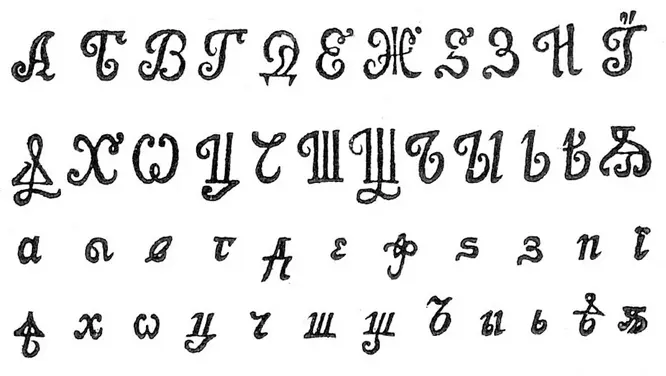 А Б В Г Д Е Ж Ѕ З И Ї
Ф Х Ѡ Ц Ч Ш Щ Ъ Ы Ь Ѣ Ѫ
а б в г д е ж ѕ з и ї
ф х ѡ ц ч ш щ ъ ы ь ѣ ѫ